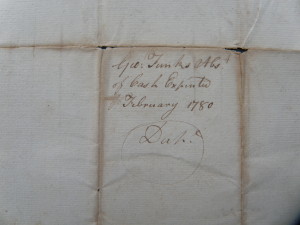 Geo: Funks Abst
of Cash Expended
February 1780
Dupt.